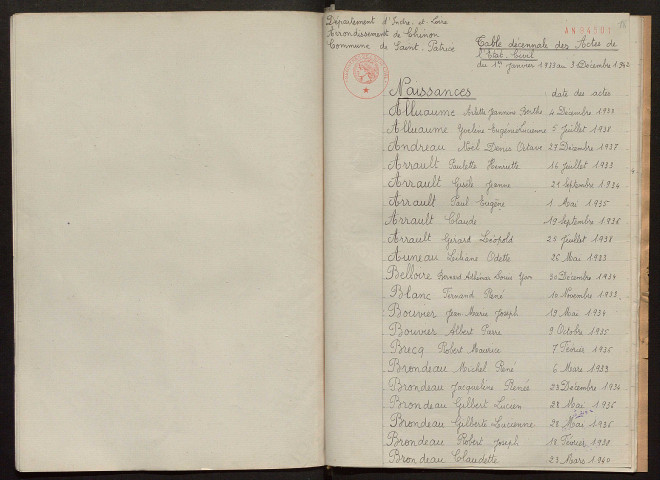 Département d'Indre-et-Loire
Arrondissement de Chinon
Commune de Saint-Patrice
Table décennale des Actes de
l'Etat-Civil
du 1er Janvier 1933 au 31 Décembre 1940
Naissances date des actes
Alluaume Arlette Jeannine Berthe 4 Décembre 1933
Alluaume Yveline Eugénie Lucienne 5 Juillet 1938
Andreau Noël Denis Octave 27 Décembre 1937
Arrault Paulette Henriette 14 Juillet 1933
Arrault Gisèle Jeanne 21 Septembre 1934
Arrault Paul Eugène 1 Mai 1935
Arrault Claude 19 Septembre 1936
Arrault Gérard Léopold 25 Juillet 1938
Auneau Liliane Odette 26 Mai 1933
Belloire Bernard Louis Yvon 30 Décembre 1934
Blanc Fernand René 10 Novembre 1933
Bouvier Jean Marie Joseph 19 Mai 1934
Bouvier Albert Pierre 9 Octobre 1935
Brecq Robert Maurice 7 Février 1935
Brondeau Michel René 6 Mars 1933
Brondeau Jacqueline Renée 23 Décembre 1934
Brondeau Gilbert Lucien 28 Mai 1936
Brondeau Gilberte Lucienne 28 Mai 1936
Brondeau Robert Joseph 18 Février 1938
Brondeau Claudette 23 Mars 1940